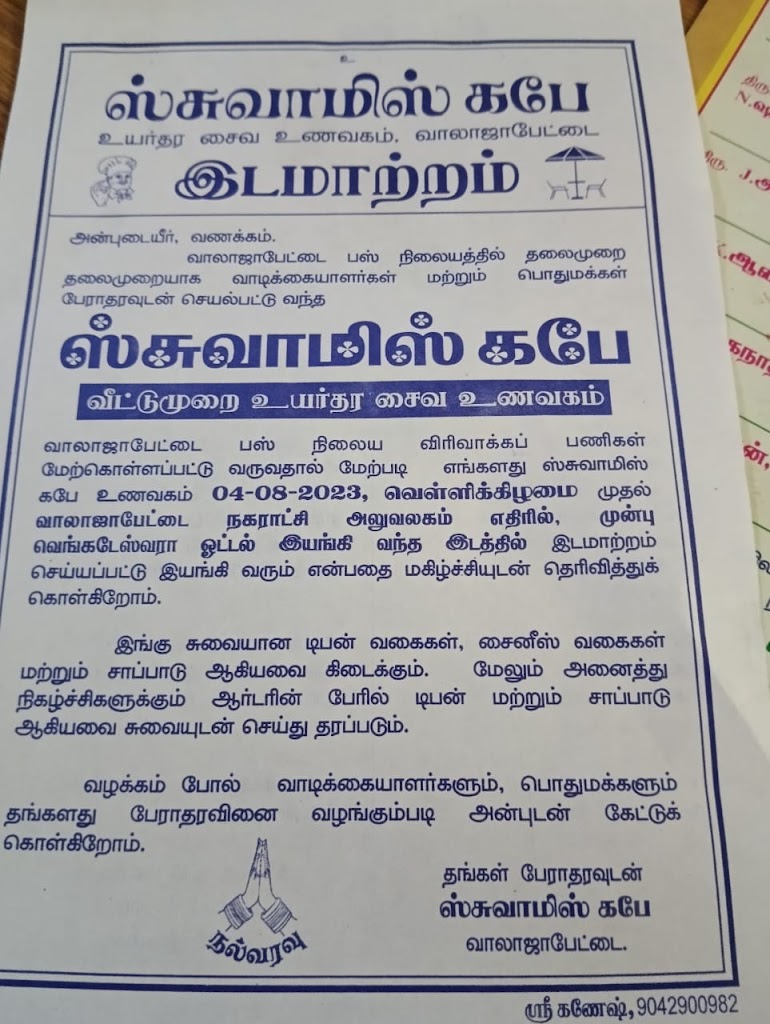 உ
ஸ்சுவாமிஸ் கபே
உயர்தர சைவ உணவகம், வாலாஜாபேட்டை
இடமாற்றம்
அன்புடையீர், வணக்கம்.
வாலாஜாபேட்டை பஸ் நிலையத்தில் தலைமுறை
தலைமுறையாக வாடிக்கையாளர்கள் மற்றும் பொதுமக்கள்
பேராதரவுடன் செயல்பட்டு வந்த
ஸ்சுவாமிஸ் கபே
வீட்டுமுறை உயர்தர சைவ உணவகம்
வாலாஜாபேட்டை பஸ் நிலைய விரிவாக்கப் பணிகள்
மேற்கொள்ளப்பட்டு வருவதால் மேற்படி எங்களது ஸ்சுவாமிஸ்
கபே உணவகம் 04-08-2023, வெள்ளிக்கிழமை முதல்
வாலாஜாபேட்டை நகராட்சி அலுவலகம் எதிரில், முன்பு
வெங்கடேஸ்வரா ஓட்டல் இயங்கி வந்த இடத்தில் இடமாற்றம்
செய்யப்பட்டு இயங்கி வரும் என்பதை மகிழ்ச்சியுடன் தெரிவித்துக்
கொள்கிறோம்.
இங்கு சுவையான டிபன் வகைகள், சைனீஸ் வகைகள்
மற்றும் சாப்பாடு ஆகியவை கிடைக்கும். மேலும் அனைத்து
நிகழ்ச்சிகளுக்கும் ஆர்டரின் பேரில் டிபன் மற்றும் சாப்பாடு
ஆகியவை சுவையுடன் செய்து தரப்படும்.
வழக்கம் போல் வாடிக்கையாளர்களும், பொதுமக்களும்
தங்களது பேராதரவினை வழங்கும்படி அன்புடன் கேட்டுக்
கொள்கிறோம்.
நல்வரவு
தங்கள் பேராதரவுடன்
ஸ்சுவாமிஸ் கபே
வாலாஜாபேட்டை.
ஸ்ரீ கணேஷ், 9042900982
திரு
N.
திரு. J.